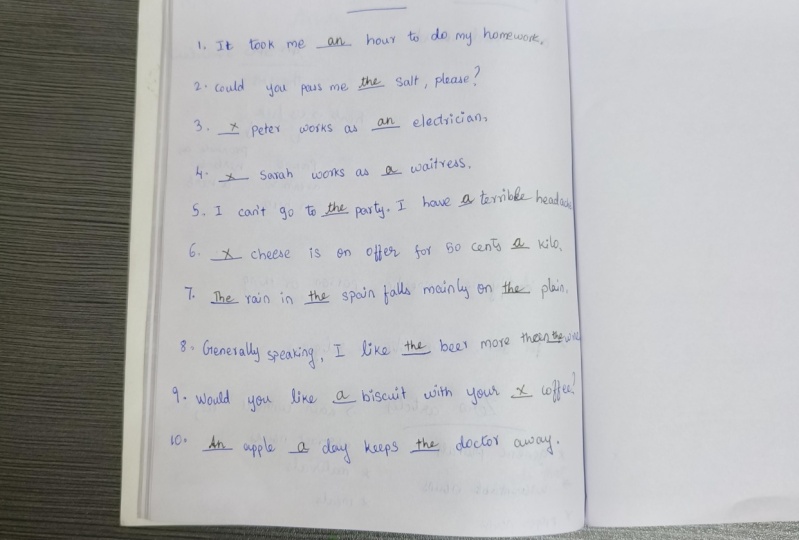 1. It took me an hour to do my homework.
2. Could you pass me the salt, please?
3. x Peter works as an electrician.
4. x Sarah works as a waitress.
5. I can't go to the party. I have a terrible headache
6. x cheese is on offer for 50 cents a kilo.
7. The rain in the spain falls mainly on the plain.
8. Generally speaking, I like the beer more than the wine
9. Would you like a biscuit with your x coffee?
10. An apple a day keeps the doctor away.